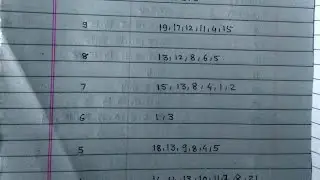 9 19, 17, 12, 11, 4, 15
8 13, 12, 8, 6, 5
7 15, 13, 8, 4, 1, 2
6 1, 3
5 18, 13, 9, 8, 4, 5